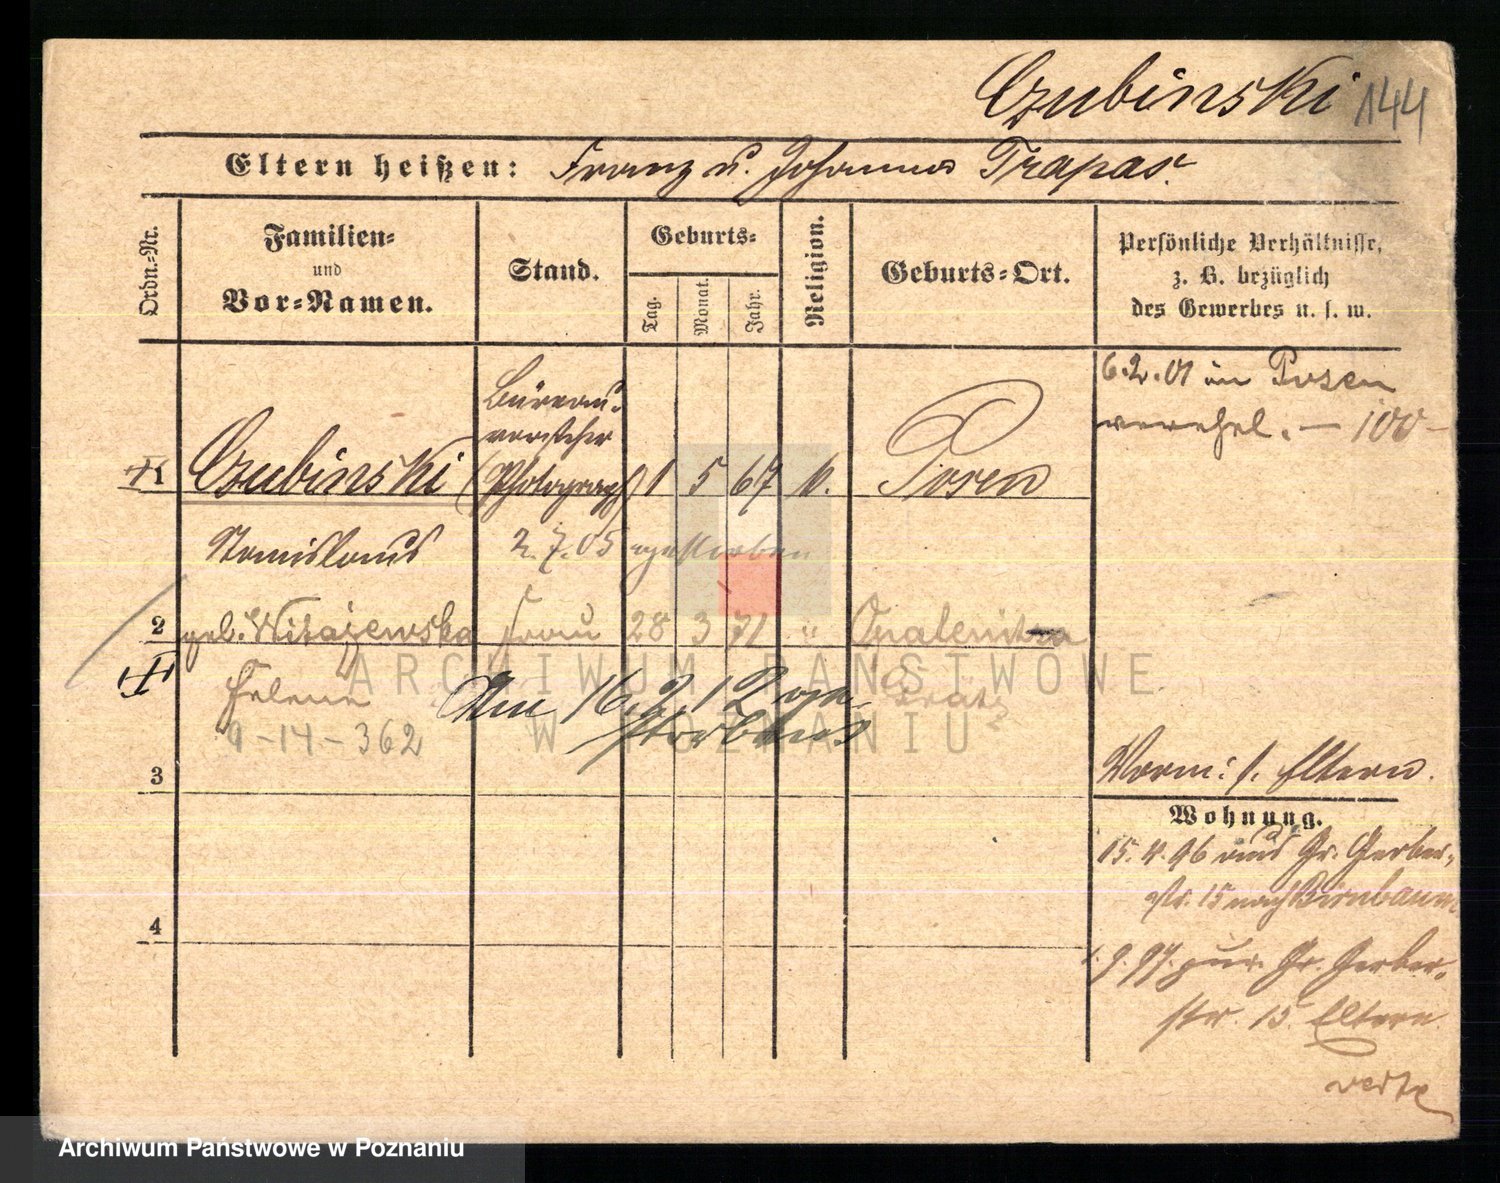 Czubinski 144
Eltern heißen: Franz u. Johanna Trapas.
Ordn.-Nr.
Familien-
und
Vor-Namen.
Stand.
Geburts-
Tag.
Monat.
Jahr.
Religion.
Geburts-Ort.
Persönliche Verhältnisse,
z. B. bezüglich
des Gewerbes u. s. w.
1 Czubinski
Büreau-
vorsteher
(Photograph) 1 5 67 k. Posen
6.2.01 in Posen
verehel. — 100 -
Stanislaus 2.7.05 gestorben
2 geb. Witajewska Frau 28 3 71 " Opalenitza
Helene Am 16.2.12 ge- Grätz
storben
9-14-362
3
Vorm: s. Eltern.
Wohnung.
15.4.96 aus Gr. Gerber-
str. 15 nach Birnbaum
1.9.97. zur. Gr. Gerber-
str. 15. Eltern.
verte
4
ARCHIWUM PAŃSTWOWE
W POZNANIU
Archiwum Państwowe w Poznaniu